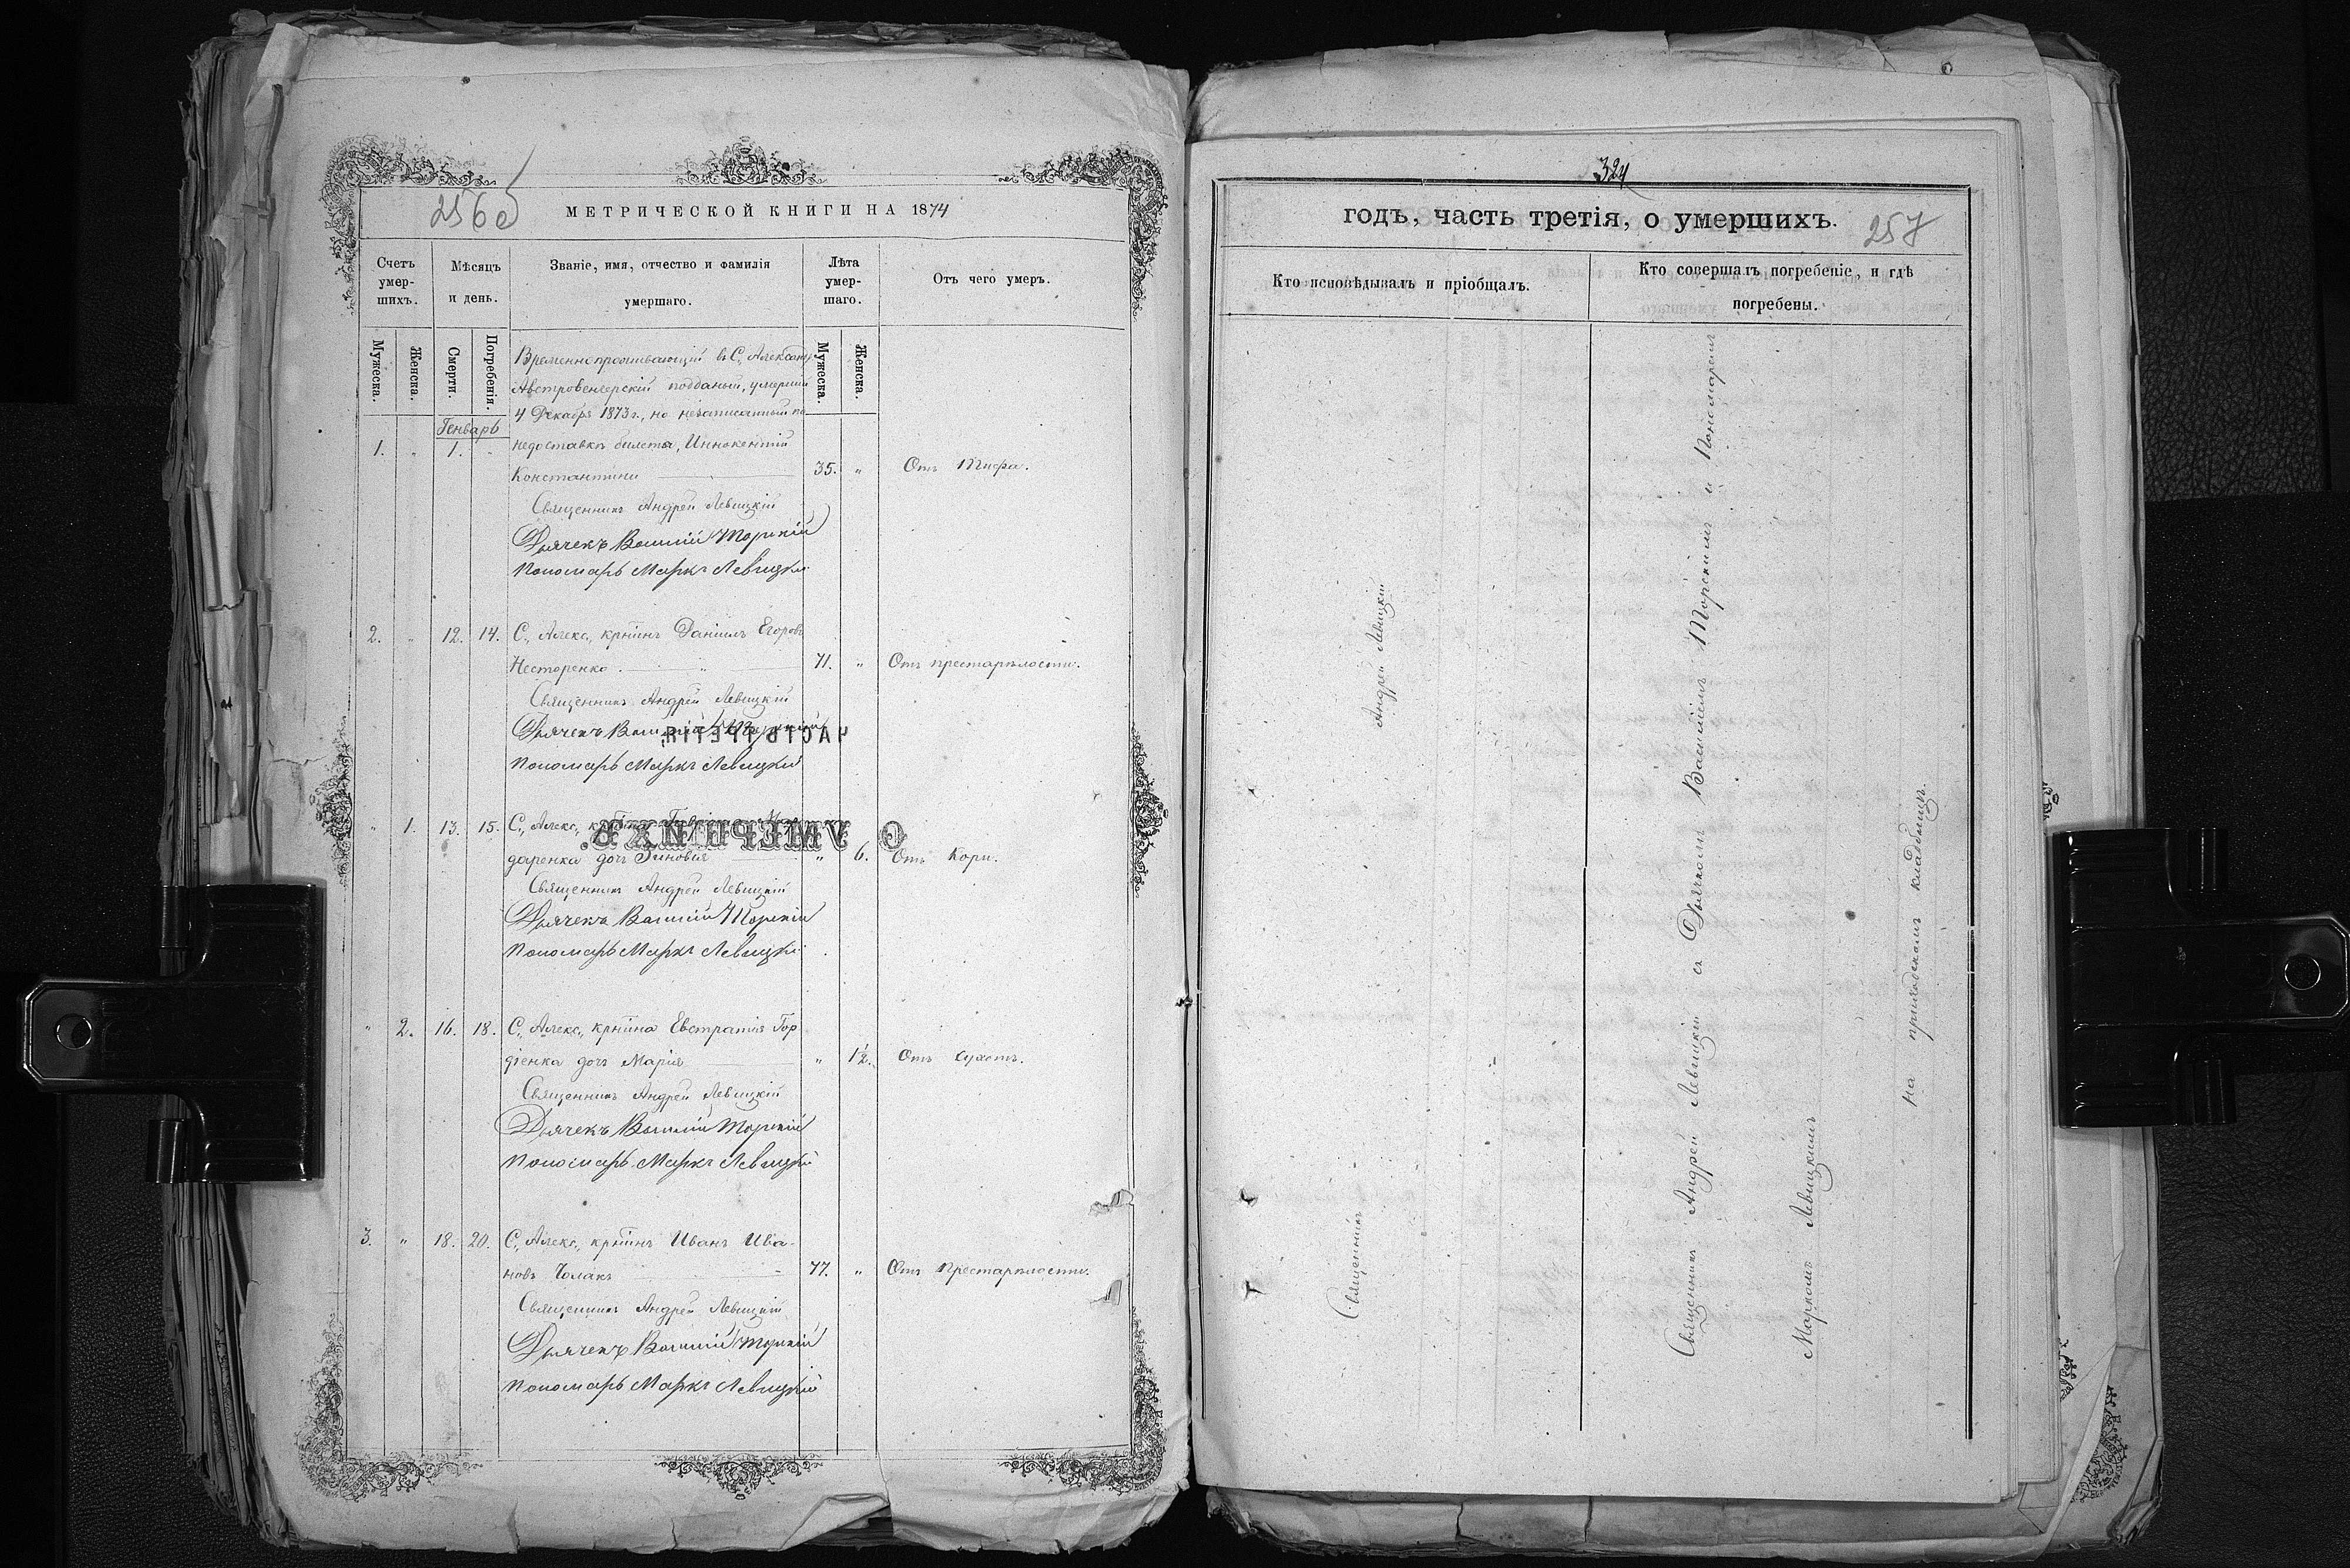 256об
МЕТРИЧЕСКОЙ КНИГИ НА 1874
Счетъ умер-шихъ.
Мѣсяцъ и день.
Званіе, имя, отчество и фамилія умершаго.
Лѣта умер-шаго.
Отъ чего умеръ.
Мужеска.
Женска.
Смерти.
Погребенія.
Мужеска.
Женска.
Временнопроживающій въ С. Александ
Австровенгерскій подданый, умершій
4 Декабря 1873 г., но незаписанный по
Генварь
1. „ 1. „ недоставкѣ билета, Иннокентій
Константини 35. „ Отъ Тифа.
Священникъ Андрей Левицкій
Дьячекъ Василій Торскій
Пономарь Маркъ Левицкій
2. „ 12. 14. С., Алекс., крнинъ Даніилъ Егоровъ
Несторенко. „ 71. „ Отъ престарѣлости.
Священникъ Андрей Левицкій
Дьячекъ Василій Торскій
ЧАСТЬ ТРЕТІЯ,
Пономарь Маркъ Левицкій
„ 1. 13. 15. С., Алекс.,
О УМЕРШИХЪ.
даренка дочь Зиновія „ 6. Отъ Кори.
Священникъ Андрей Левицкій
Дьячекъ Василій Торскій
Пономарь Маркъ Левицкій
„ 2. 16. 18. С., Алекс., крнина Евстратія Гор
діенка дочь Марія „ 1½. Отъ сухотъ.
Священникъ Андрей Левицкій
Дьячекъ Василій Торскій
Пономарь Маркъ Левицкій
3. „ 18. 20. С., Алекс., крнинъ Иванъ Ива-
новъ Чолакъ 77. „ Отъ Престарѣлости.
Священникъ Андрей Левицкій
Дьячекъ Василій Торскій
Пономарь Маркъ Левицкій
324
годъ, часть третія, о умершихъ.
257
Кто исповѣдывалъ и пріобщалъ.
Кто совершалъ погребеніе, и гдѣ
погребены.
Священникъ Андрей Левицкій
Священникъ Андрей Левицкій съ Дьячкомъ Василіемъ Торскимъ и Пономаремъ
Маркомъ Левицкимъ
на приходскомъ кладбищѣ.